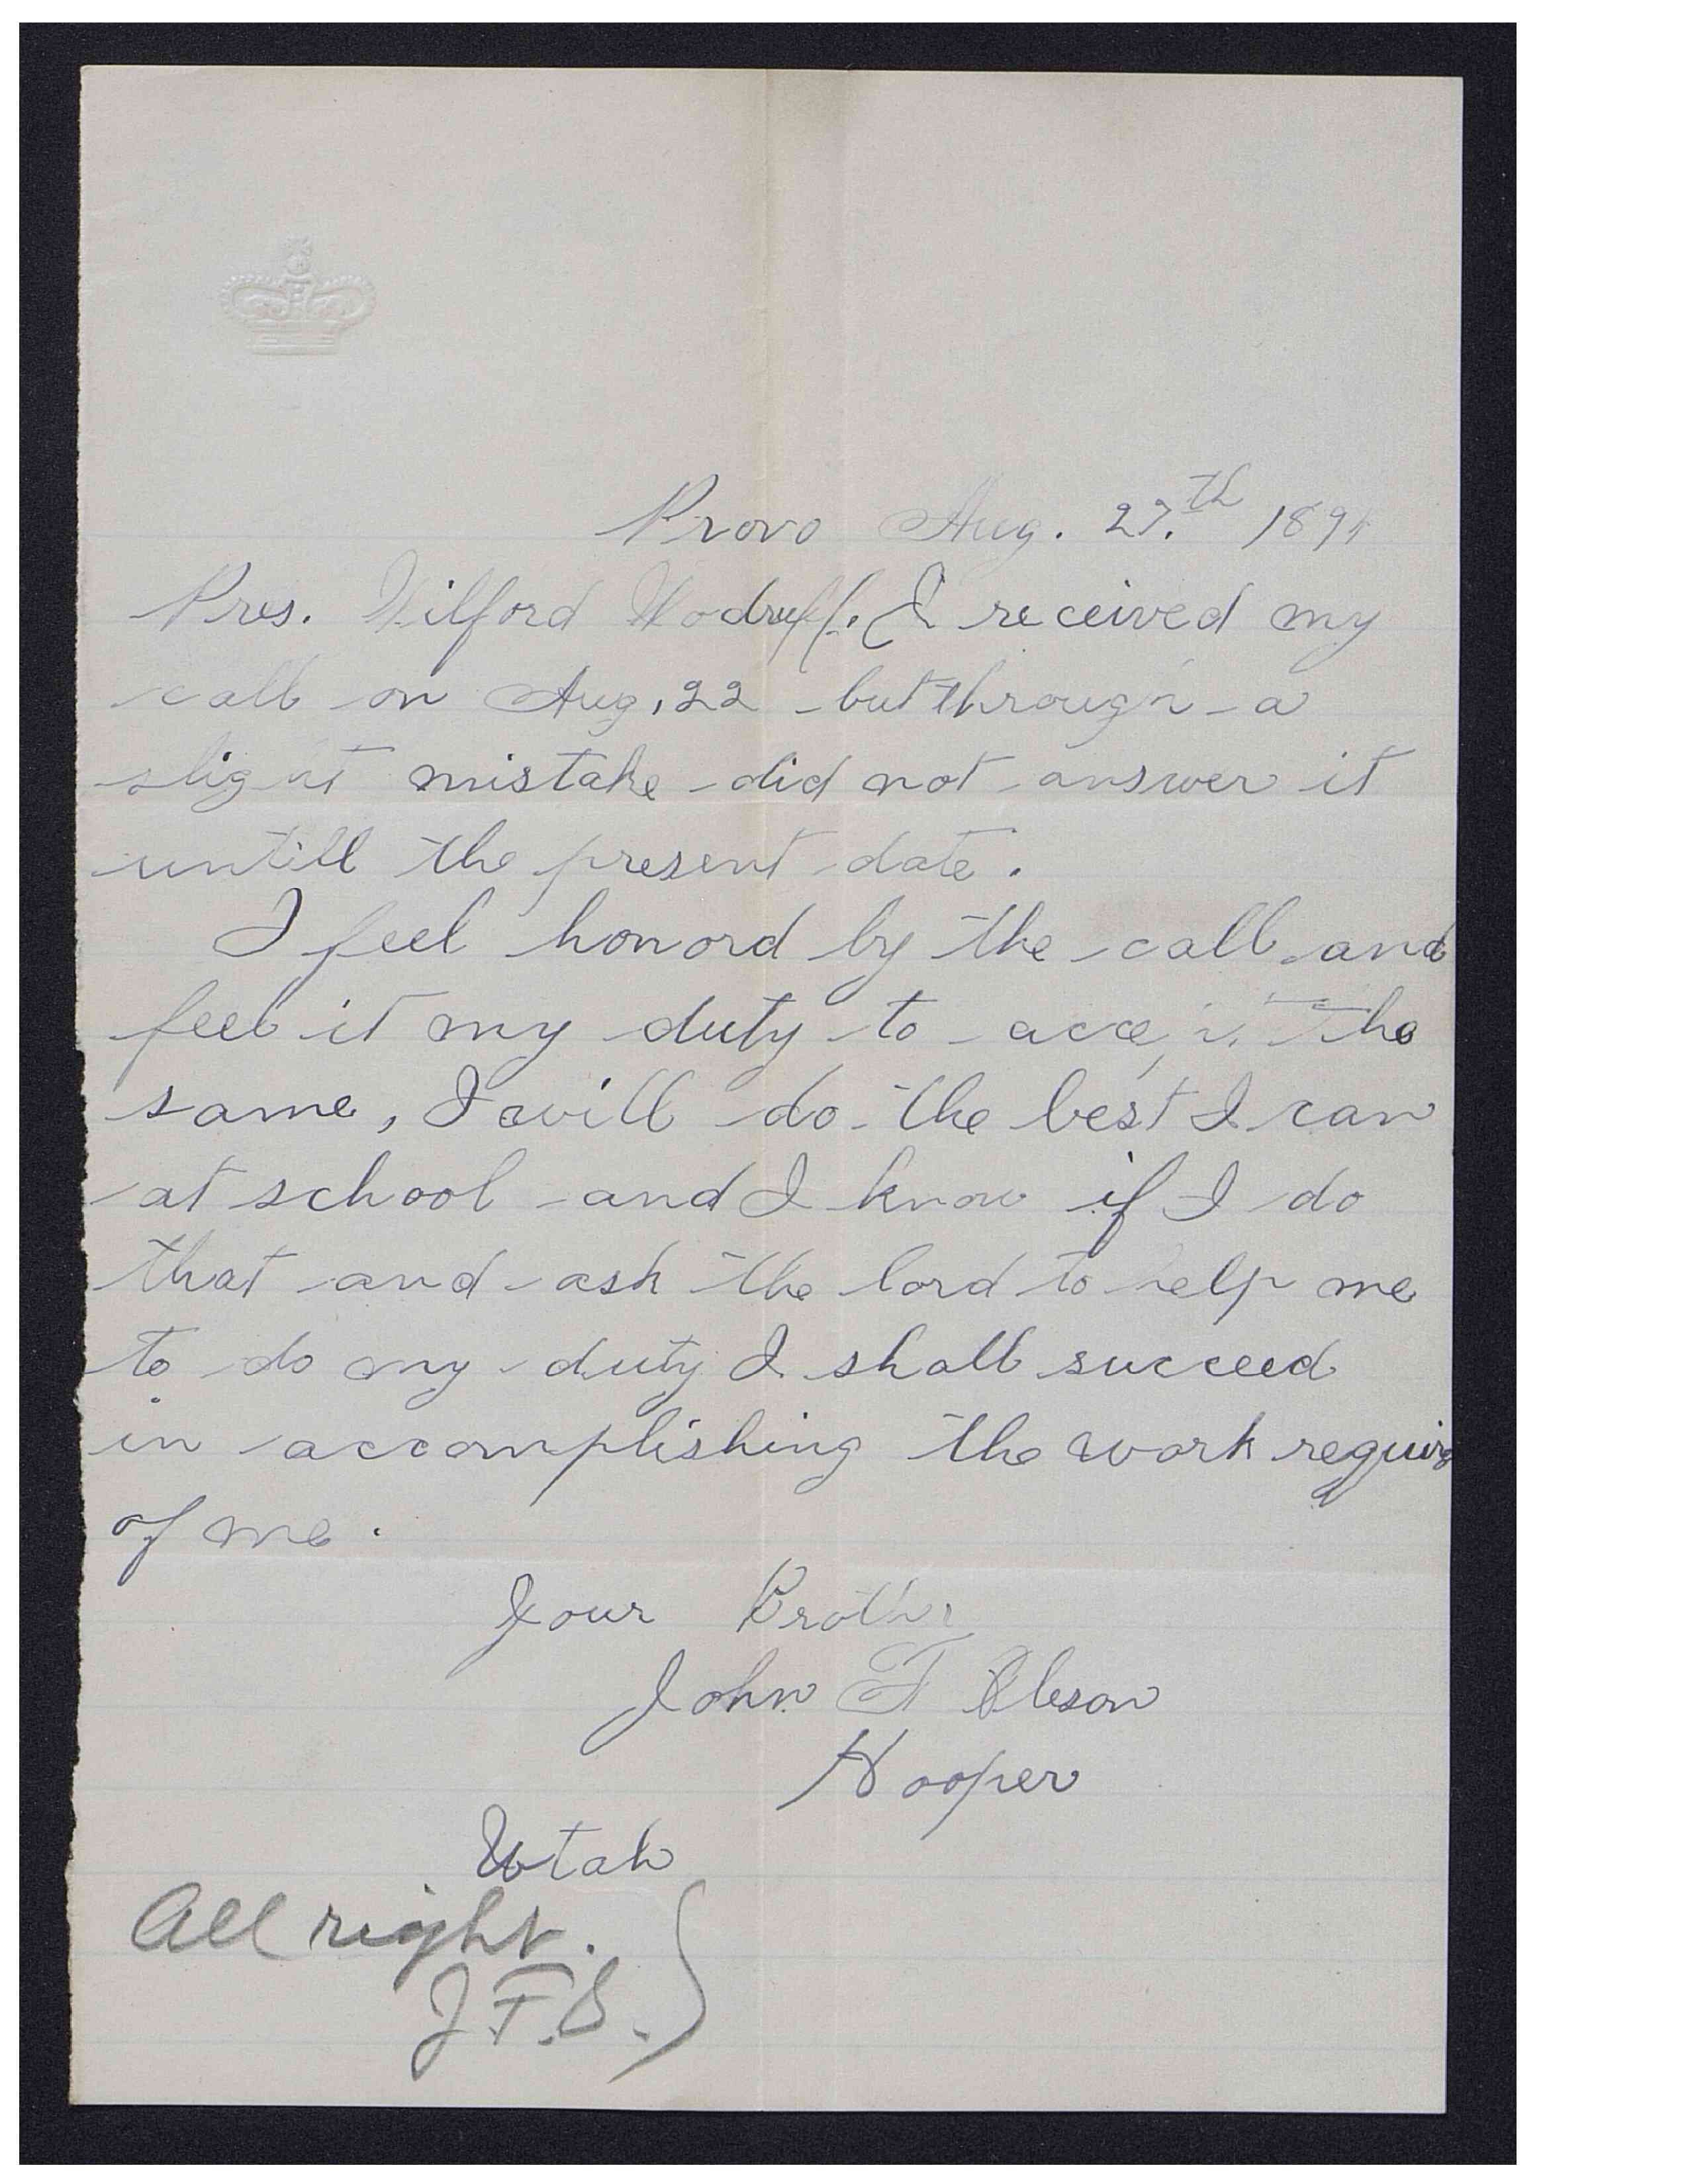 Provo Aug. 27.th 1891
Pres. Wilford Wodruff. I received my
call on Aug, 22 but through a
slight mistake did not answer it
untill the present date.
I feel honord by the call and
feel it my duty to accept the
same, I will do the best I can
at school and I know if I do
that and ask the lord to help me
to do my duty I shall succeed
in accomplishing the work require
of me.
Your Brother
John F Oleson
Hooper
Utah
All right.
J.F.S.